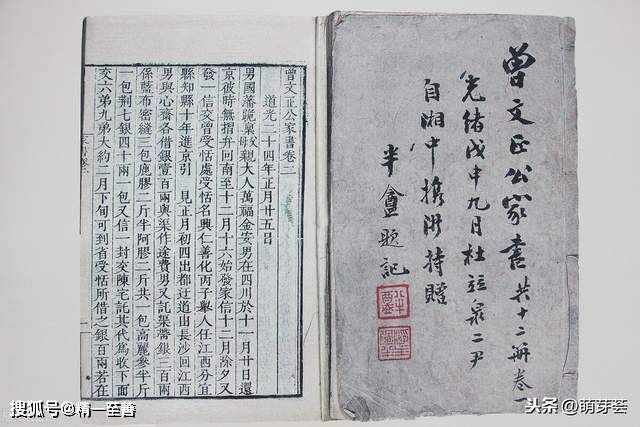 曾文正公家書 共十二冊 卷一
光緒戊申九月杜 泉二尹
自湘中携 持贈
半盦題記
曾文正公家書卷二
道光二十四年正月廿五日
男國藩跪稟父母親大人萬福金安男在四川於十一月十日還
京彼時無摺弁回南至十二月十六始發家信十二月除夕又
發一信交曾受恬處受恬名興仁善化丙子舉人任江西分宜
縣知縣十年進京引 見正月初四出都迂道由長沙回江西
男與心齋各借銀壹百兩與渠作途費男又託渠帶銀三百兩
係藍布密縫三包鹿膠二斤半阿膠二斤共一包高麗參半斤
一包荆七銀四十兩一包又信一封交陳宅託其代為收下面
交六弟九弟大約二月下旬可到省受恬所借之銀百兩若在
搜狐号@精一至善
头条@萌芽荟